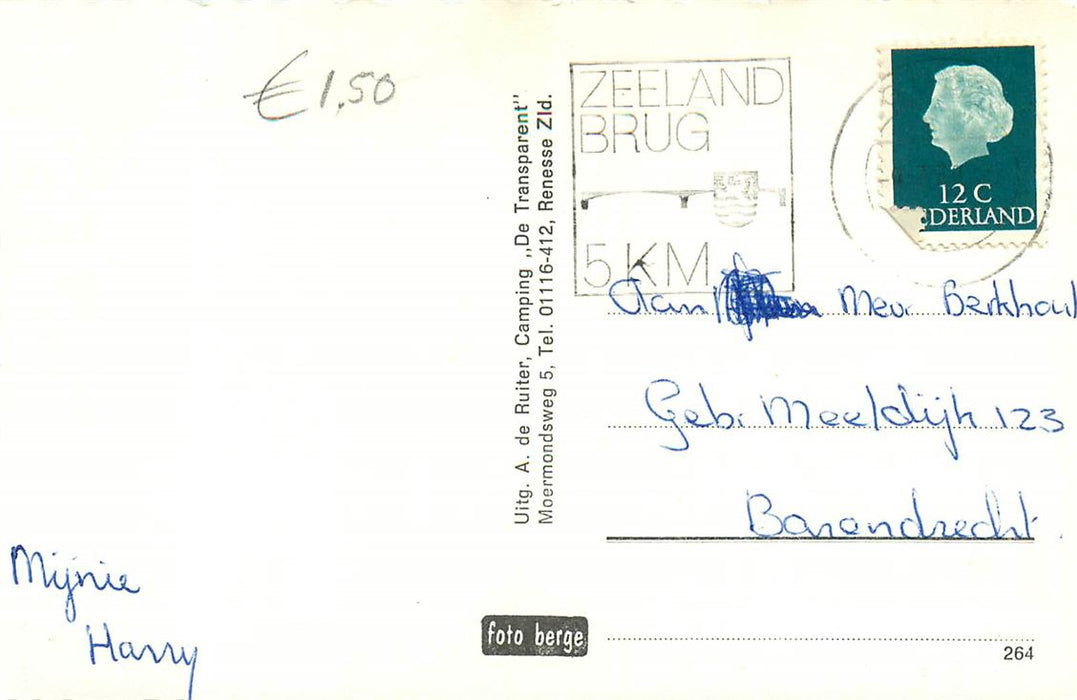 €1,50
Uitg. A. de Ruiter, Camping „De Transparent"
Moermondsweg 5, Tel. 01116-412, Renesse Zld.
ZEELAND
BRUG
5 KM
12 C
DERLAND
Aan Mev. Berkhout
Geb. Meeldijk 123
Barendrecht
Mijnie
Harry
foto berge
264